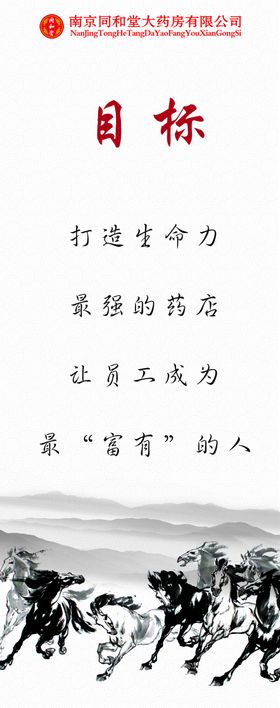 同和堂
南京同和堂大药房有限公司
NanJingTongHeTangDaYaoFangYouXianGongSi
目标
打造生命力
最强的药店
让员工成为
最“富有”的人